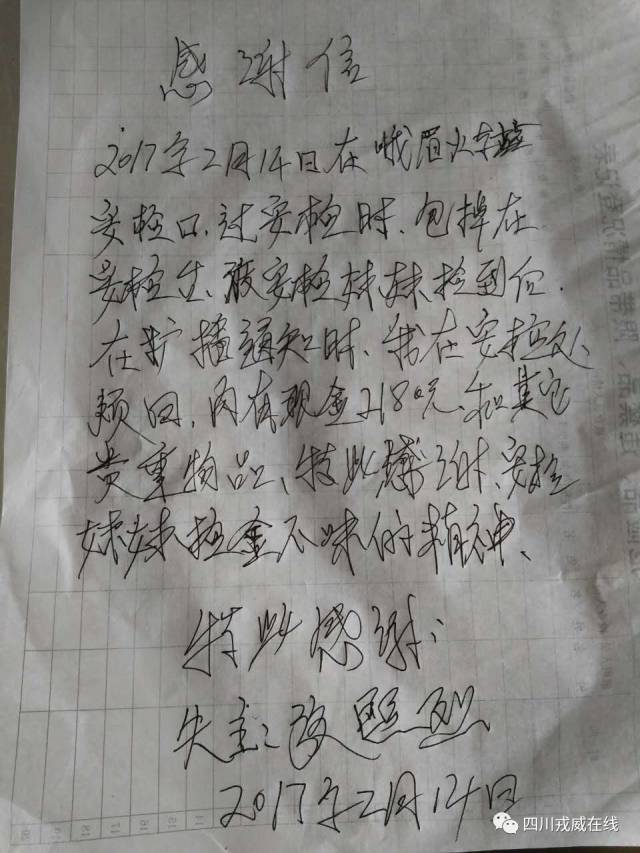 感谢信
2017年2月14日在峨眉火车站
安检口.过安检时.包掉在
安检生、被安检妹妹捡到后.
在扩播通知时、我在安检处
领回.内有现金2180元、和其它
贵重物品、特此感谢、安检
妹妹拾金不昧的精神、
特此感谢:
失主:
2017年2月14日
四川戎威在线